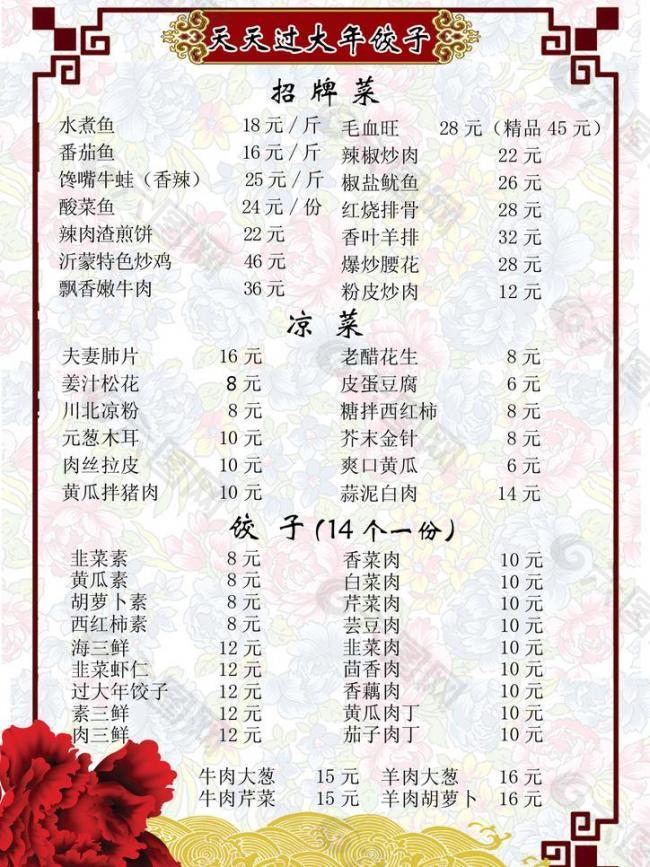 天天过大年饺子
招牌菜
水煮鱼 18元/斤 毛血旺 28元（精品45元）
番茄鱼 16元/斤 辣椒炒肉 22元
馋嘴牛蛙（香辣） 25元/斤 椒盐鱿鱼 26元
酸菜鱼 24元/份 红烧排骨 28元
辣肉渣煎饼 22元 香叶羊排 32元
沂蒙特色炒鸡 46元 爆炒腰花 28元
飘香嫩牛肉 36元 粉皮炒肉 12元
凉菜
夫妻肺片 16元 老醋花生 8元
姜汁松花 8元 皮蛋豆腐 6元
川北凉粉 8元 糖拌西红柿 8元
元葱木耳 10元 芥末金针 8元
肉丝拉皮 10元 爽口黄瓜 6元
黄瓜拌猪肉 10元 蒜泥白肉 14元
饺子(14个一份)
韭菜素 8元 香菜肉 10元
黄瓜素 8元 白菜肉 10元
胡萝卜素 8元 芹菜肉 10元
西红柿素 8元 芸豆肉 10元
海三鲜 12元 韭菜肉 10元
韭菜虾仁 12元 茴香肉 10元
过大年饺子 12元 香藕肉 10元
素三鲜 12元 黄瓜肉丁 10元
肉三鲜 12元 茄子肉丁 10元
牛肉大葱 15元 羊肉大葱 16元
牛肉芹菜 15元 羊肉胡萝卜 16元